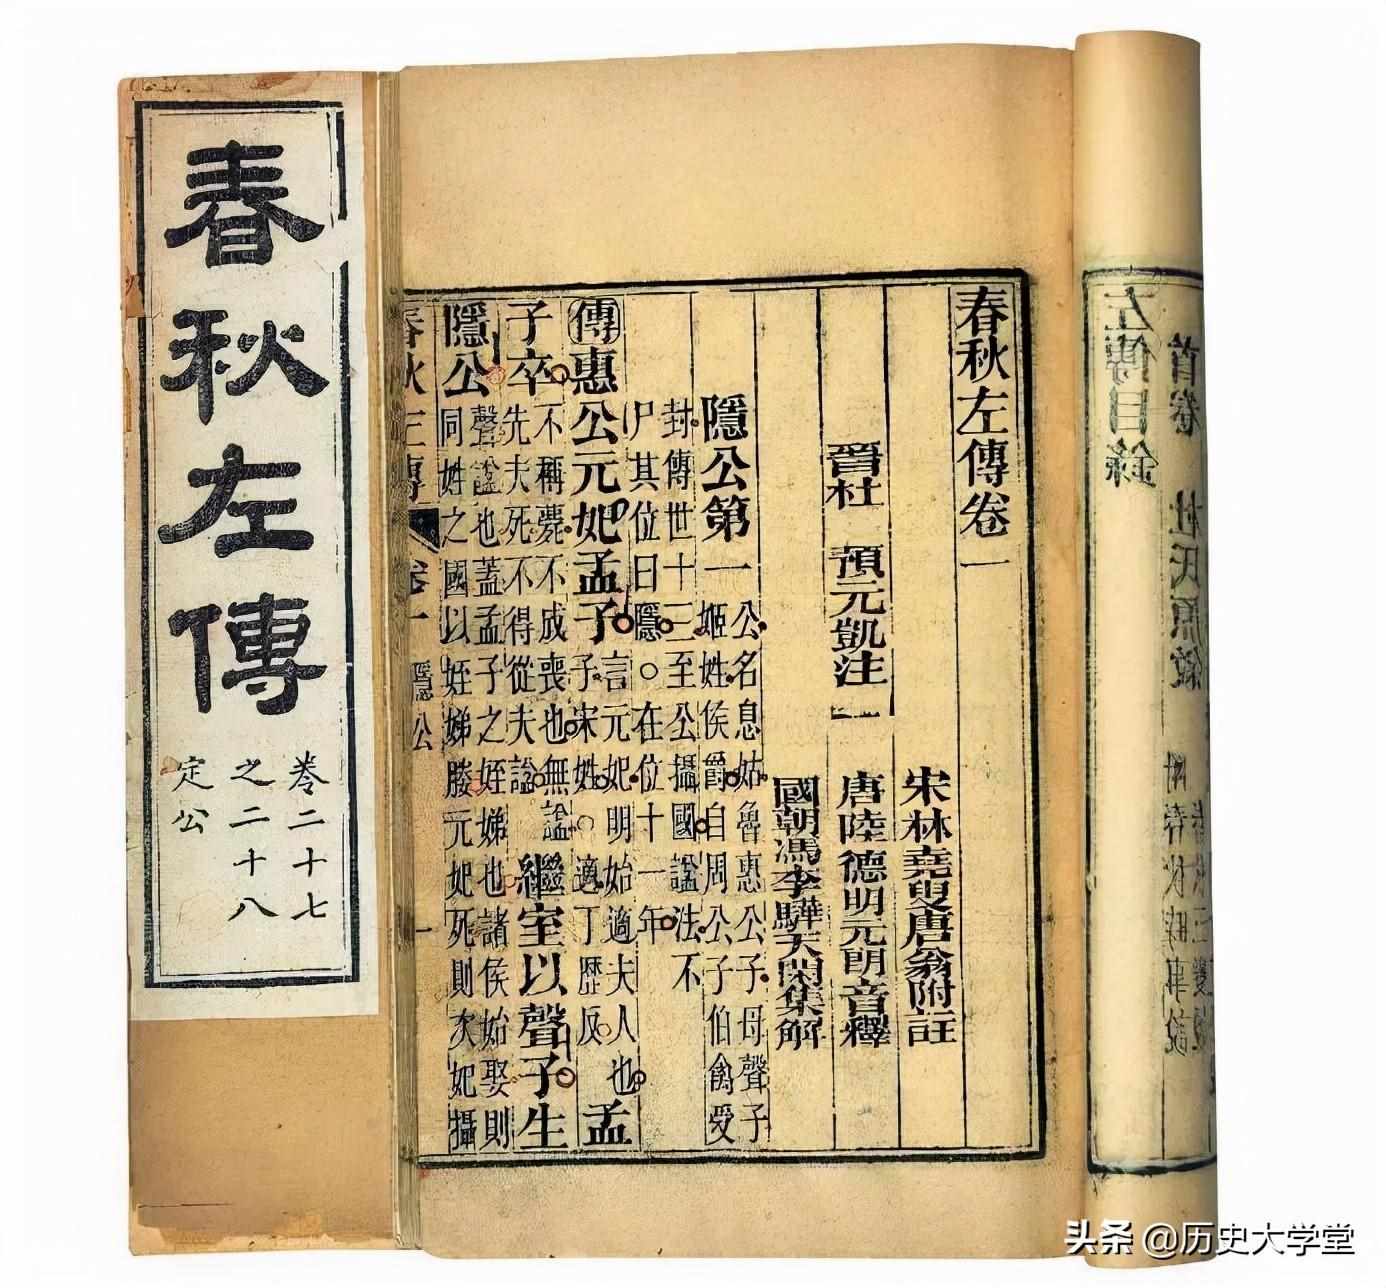 春秋左傳
卷二十七
之二十八
定公
春秋左傳卷一
宋林堯叟唐翁附註
晉杜 預元凱注 唐陸德明元朗音釋
國朝馮李驊天閑集解
隱公第一 公名息姑魯惠公子母聲子姬姓侯爵自周公子伯禽受
封傳世十三至公攝國諡法不
尸其位曰隱○在位十一年
傳惠公元妃孟子 言元妃明始適夫人也子宋姓○適丁歷反 孟
子卒 不稱薨不成喪也無諡先夫死不得從夫諡 繼室以聲子生
隱公 聲諡也蓋孟子之姪娣也諸侯始娶則同姓之國以姪娣媵元妃死則次妃攝
春秋三傳 卷一 隱公 一
左傳目錄
首卷 杜氏原敘
头条 @历史大学堂